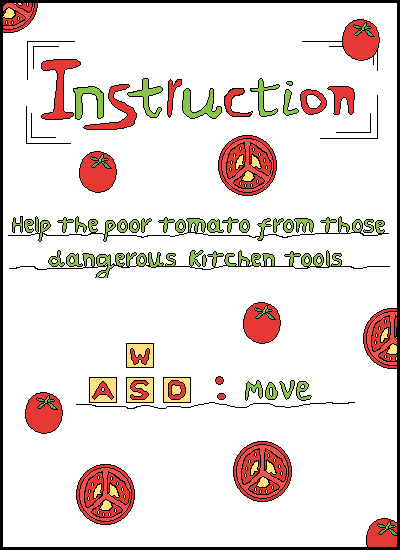 Instruction
Help the poor tomato from those
dangerous kitchen tools
W
A S D : move